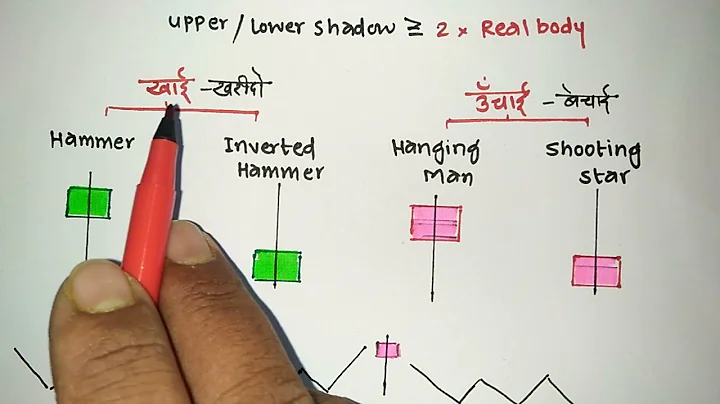 upper / Lower shadow ≥ 2 × Real body
खाई - खरीदो
ऊँचाई - बेचाई
Hammer
Inverted
Hammer
Hanging
Man
Shooting
star